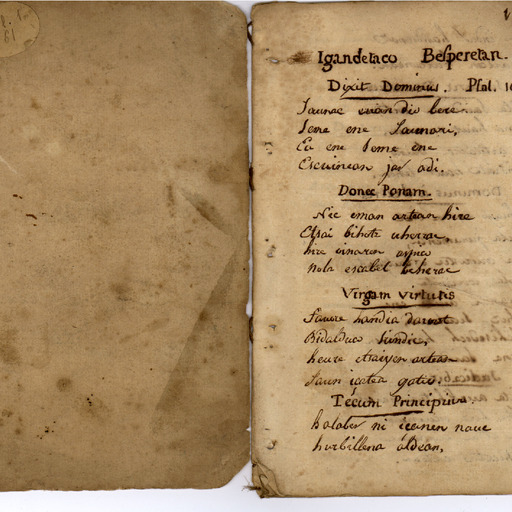 Igandetaco Besperetan.
Dixit Dominus. Psal. 10
Jaunac erran dio bere
Seme ene Jaunari,
Ea ene Seme ene
Escuinean jar adi.
Donec Ponam.
Nic eman artean hire
Etsai bihotz
hire oinaren azpico
nola escabel beherac
Virgam virtutis
Jaure handia
Bidalduco
heure etsaiyen artean
Jaun içatea gatic.
Tecum Principium
halaber ni içanen naue
hurbillena aldean,